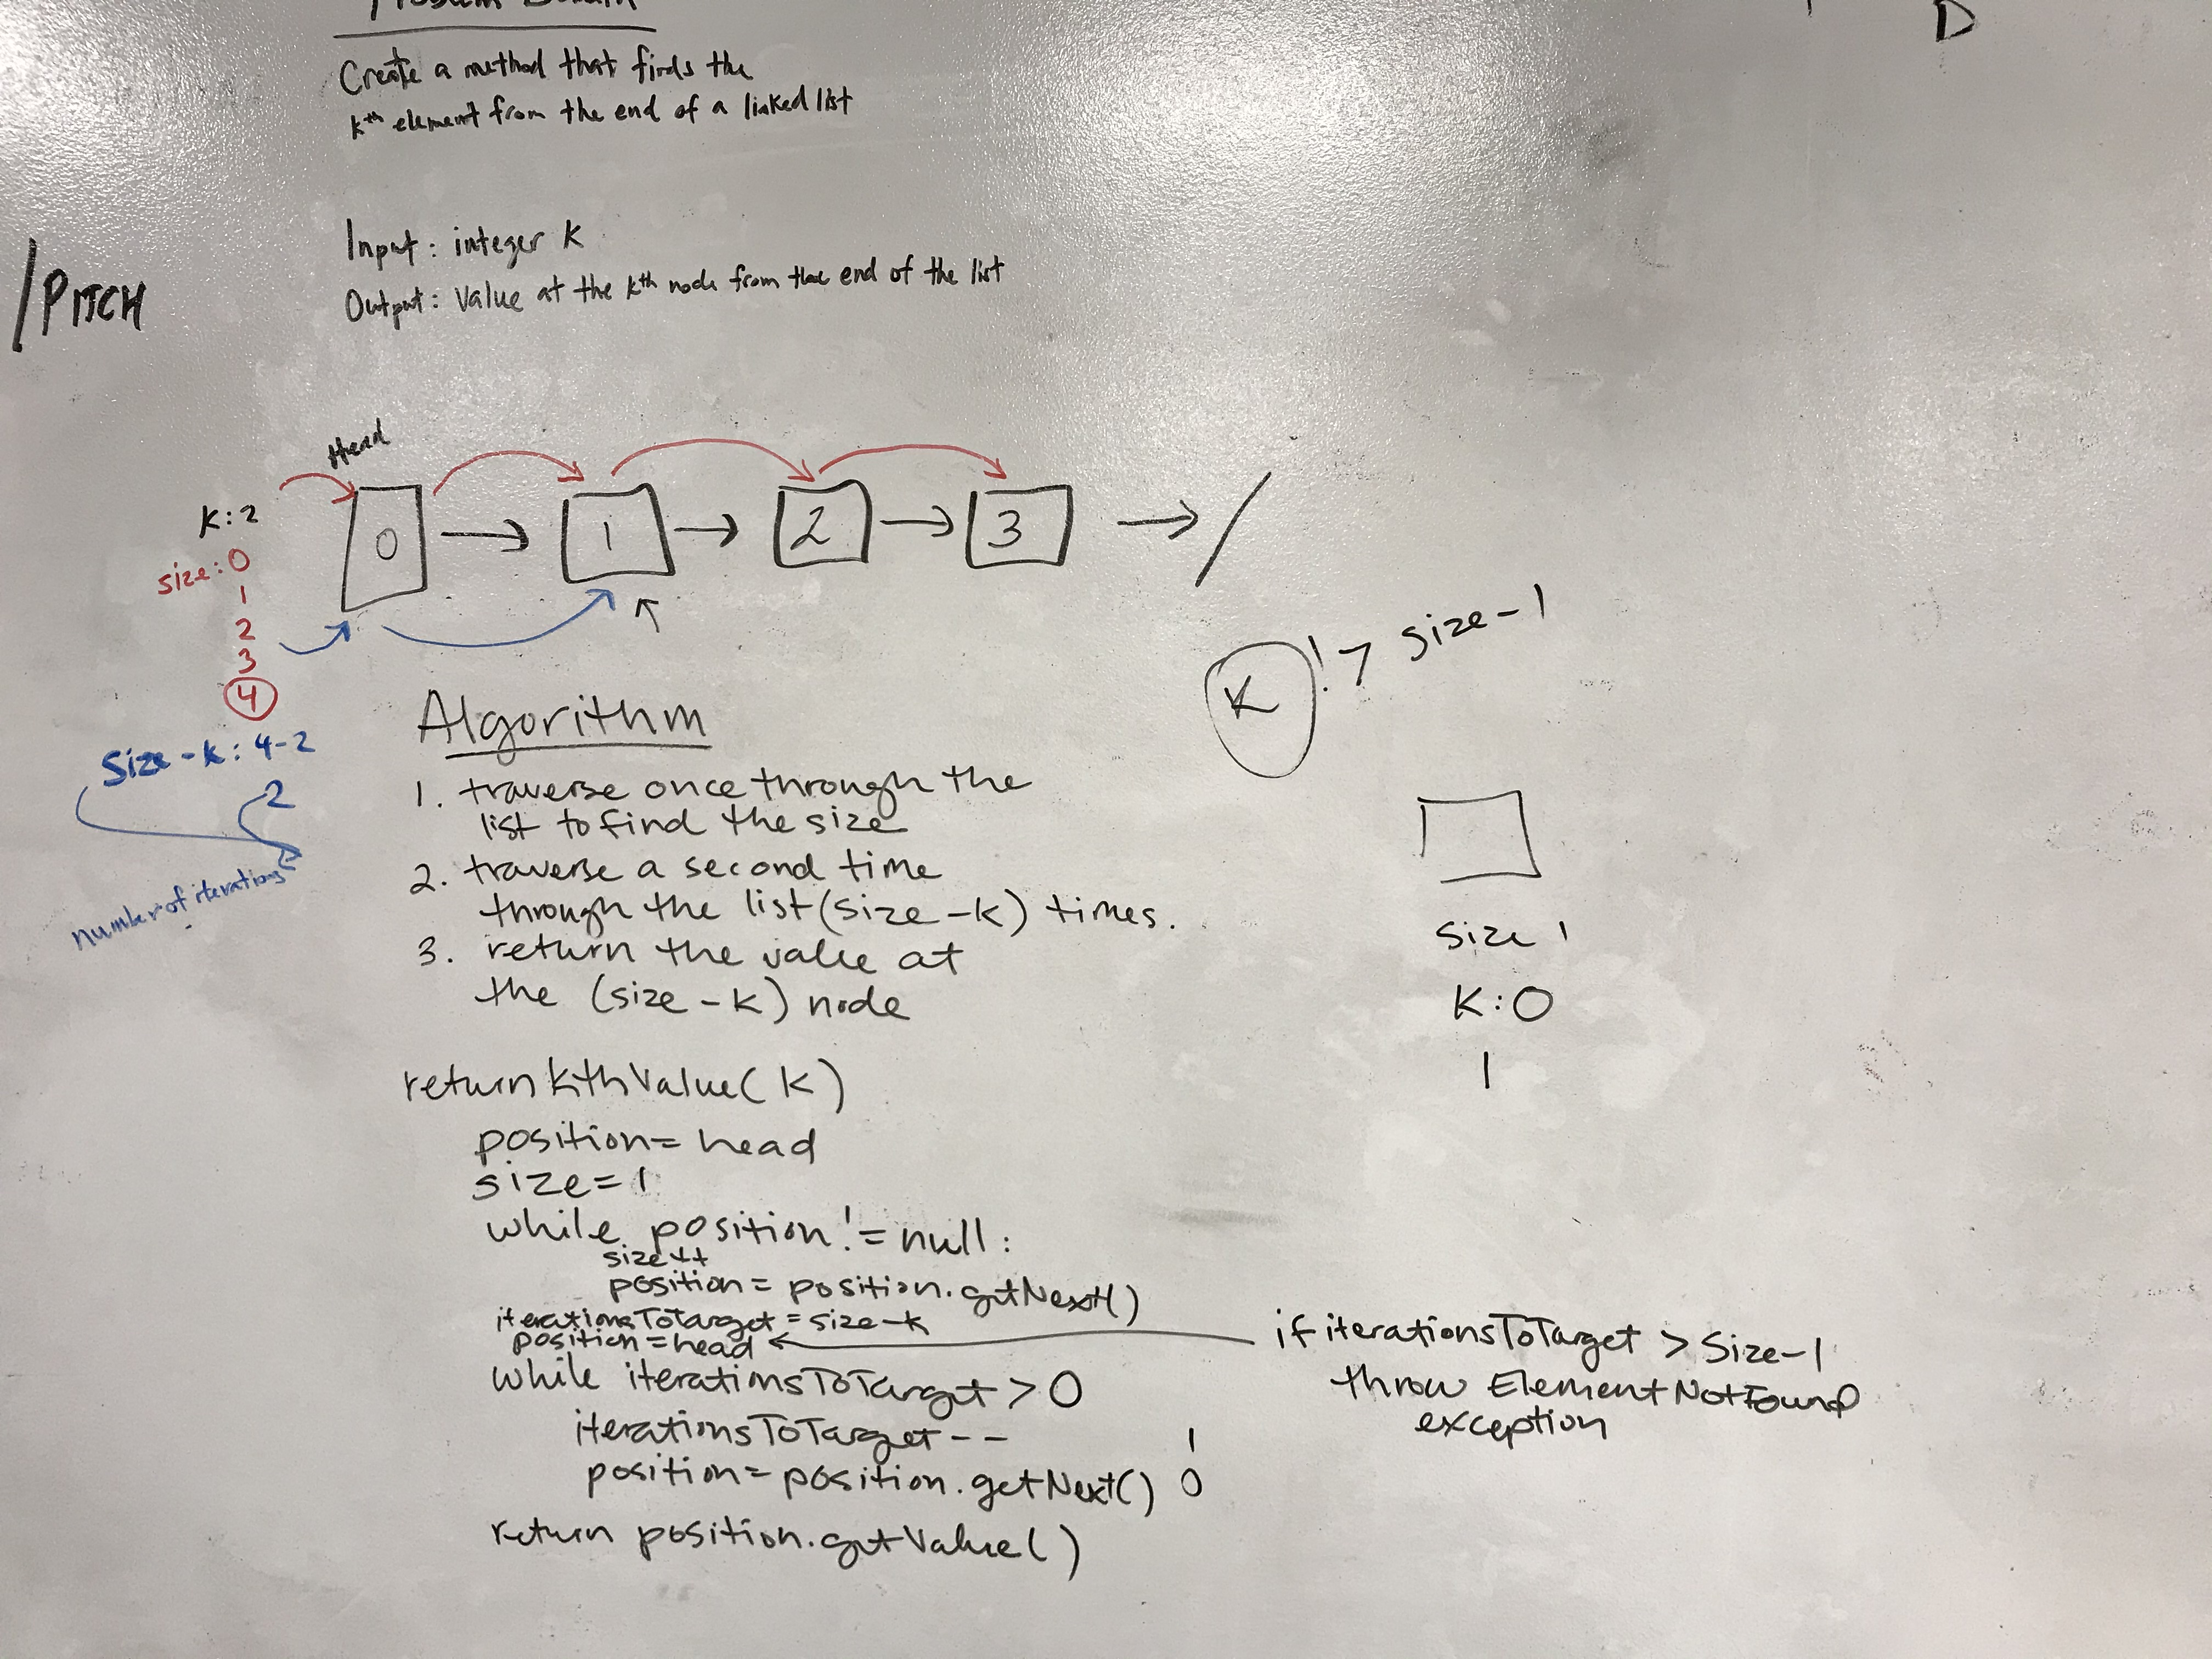 Problem Domain
D
Create a method that finds the
kth element from the end of a linked list
Input: integer k
Output: value at the kth node from the end of the list
/PITCH
Head
K:2
0
1
2
3
size:0
1
2
3
4
Size-k: 4-2
2
number of iterations
K !> size-1
Algorithm
1. traverse once through the
list to find the size
2. traverse a second time
through the list (size-k) times.
3. return the value at
the (size-k) node
size 1
K:0
1
return kthValue(k)
position = head
size = 1
while position != null:
size++
position = position.getNext()
iterationsToTarget = size-k
position = head
if iterationsToTarget > Size-1
throw ElementNotFound
exception
while iterationsToTarget > 0
iterationsToTarget--
1
position = position.getNext()
0
return position.getValue()